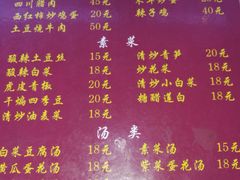 四川腊肉 45元
西红柿炒鸡蛋 20元
辣子鸡 40元
土豆烧牛肉 50元
素 菜
酸辣土豆丝 15元
清炒青笋 20元
酸辣白菜 18元
炒花菜 18元
虎皮青椒 20元
清炒小白菜 18元
干煸四季豆 20元
糖醋莲白 18元
清炒油麦菜 18元
汤 类
白菜豆腐汤 18元
素菜汤 15元
黄瓜蛋花汤 18元
紫菜蛋花汤 18元